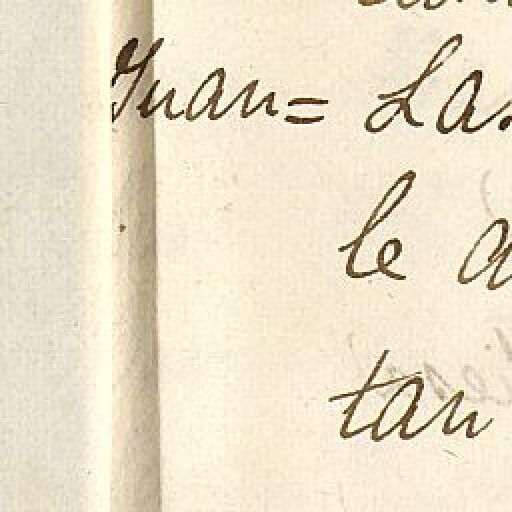 Juan= Las
le a
tan